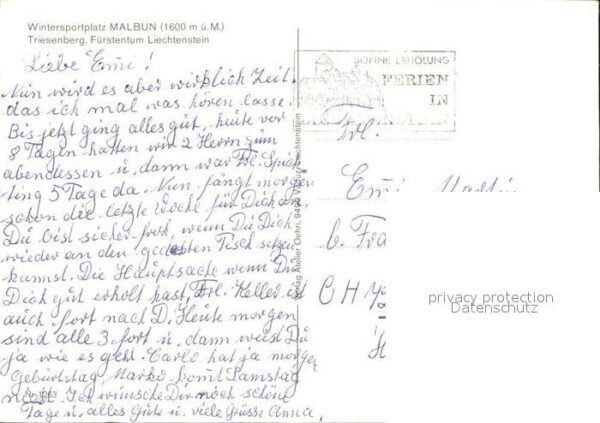 Wintersportplatz MALBUN (1600 m ü.M.)
Triesenberg, Fürstentum Liechtenstein
Liebe Emi!
Nun wird es aber wirklich Zeit,
das ich mal was hören lasse.
Bis jetzt ging alles gut, heute vor
8 Tagen hatten wir 2 Herrn zum
abendessen u. dann war Frl. Spick
ting 5 Tage da. Nun fängt morgen
schon die letzte Woche für Dich an.
Du bist sicher froh, wenn Du Dich
wieder an den gedeckten Tisch setzen
kannst. Die Hauptsache wenn Du
Dich gut erholt hast, Frl. Keller ist
auch fort nach D. Heute morgen
sind alle 3 fort u. dann weist Du
ja wie es geht. Carlo hat ja morgen
Geburtstag, Marko komt Samstag
nicht. Ich wünsche Dir noch schöne
Tage u. alles Gute u. viele Grüsse Anna.
SONNE ERHOLUNG
FERIEN
IN
Verlag Atelier Oehri, 9490 Vaduz, Liechtenstein
Frl.
Emi
b. Fra
CH
H
privacy protection
Datenschutz